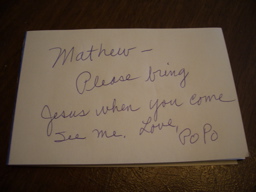 Mathew—
Please bring
Jesus when you come
see me. Love,
PoPo